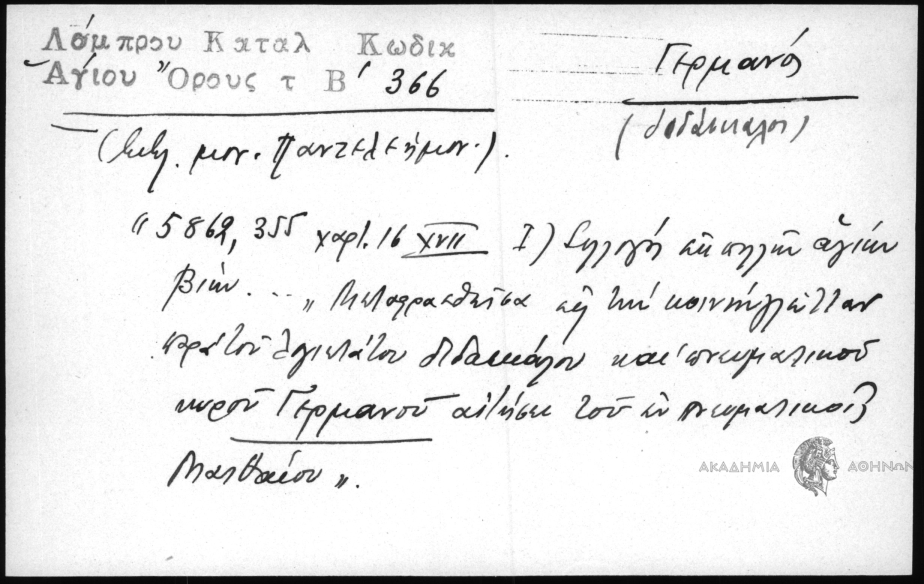 Λάμπρου Καταλ Κωδικ
Αγίου Όρους τ Β' 366
Γερμανός
(διδάσκαλος)
(Βιβλ. μον. Παντελεήμον.).
" 5862, 355 χαρτ. 16 XVII I) Συλλογή ἐκ πολλῶν ἁγίων
βίων . . . " Μεταφρασθεῖσα εἰς τὴν κοινὴν γλῶτταν
παρὰ τοῦ λογιωτάτου διδασκάλου καὶ πνευματικοῦ
κυροῦ Γερμανοῦ αἰτήσει τοῦ ἐν πνευματικοῖς
Ματθαίου ".
ΑΚΑΔΗΜΙΑ ΑΘΗΝΩΝ